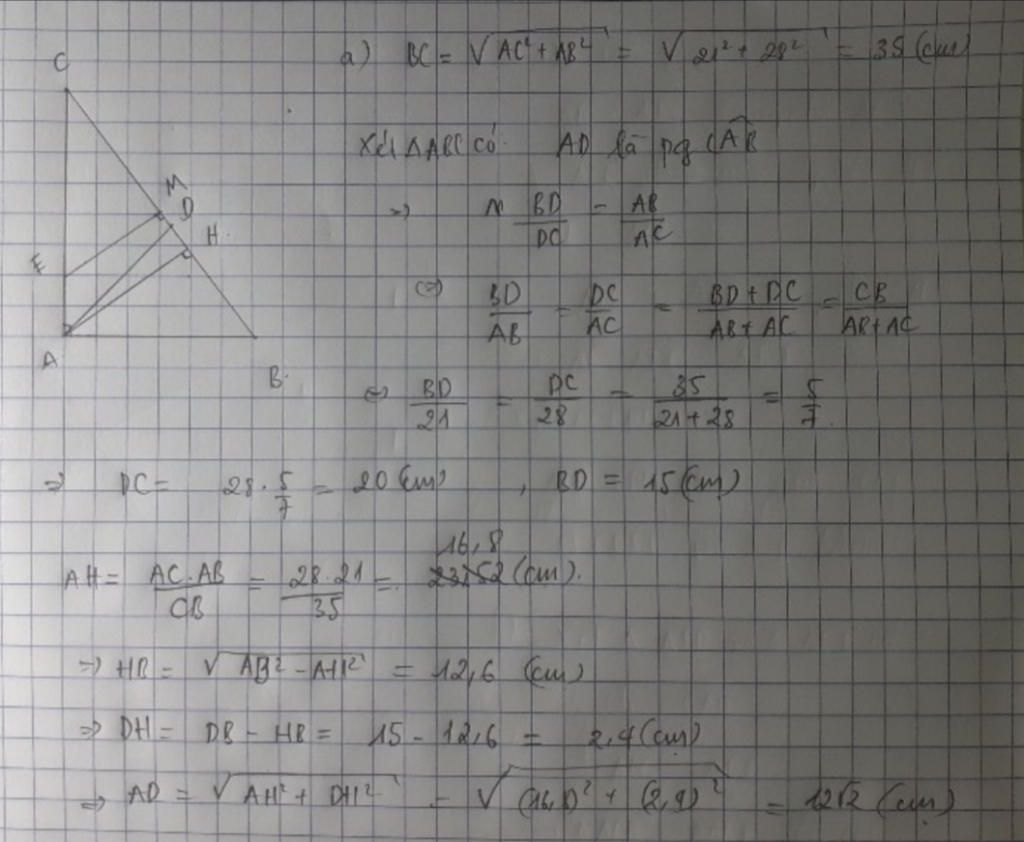 C
a) BC = √AC² + AB² = √21² + 28² = 35 (cm)
Xét ΔABC có AD là pg CAB
M
D
H
=> BD/DC = AB/AC
E
<=> BD/AB = DC/AC = BD + DC/AB + AC = CB/AB + AC
A
B
<=> BD/21 = DC/28 = 35/21 + 28 = 5/7
=> DC = 28 . 5/7 = 20 (cm) , BD = 15 (cm)
16,8
AH = AC . AB/CB = 28 . 21/35 = (cm).
=> HB = √AB² - AH² = 12,6 (cm)
=> DH = DB - HB = 15 - 12,6 = 2,4 (cm)
=> AD = √AH² + DH² = √(16,8)² + (2,4)² = 12√2 (cm)